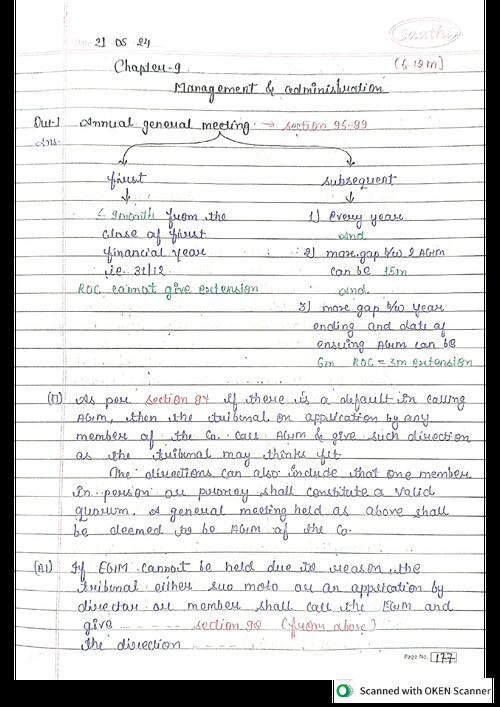 21 05 24
Saathi
Chapter-9
(6-19m]
Management & administration
Que-1 Annual general meeting → section 96-99
Ans.
first
subsequent
≤ 9month from the
close of first
financial year
i.e. 31/12
ROC cannot give extension
1) every year
and
2) max gap b/w 2 AGM
can be 15m
and
3) max gap b/w year
ending and date of
ensuing AGM can be
6m ROC = 3m extension
As per section 97 if there is a default in calling
AGM, then the tribunal on application by any
member of the Co. call AGM & give such direction
as the tribunal may thinks fit
The directions can also include that one member
in person or proxy shall constitute a valid
quorum. A general meeting held as above shall
be deemed to be AGM of the Co.
(A1) If EGM cannot be held due to reason, the
tribunal either suo moto or an application by
director or member shall call the EGM and
give ------ section 98 (from above)
the direction -----
Page No. 177
Scanned with OKEN Scanner